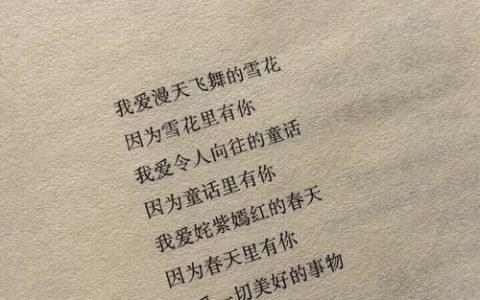 我爱漫天飞舞的雪花
因为雪花里有你
我爱令人向往的童话
因为童话里有你
我爱姹紫嫣红的春天
因为春天里有你
一切美好的事物